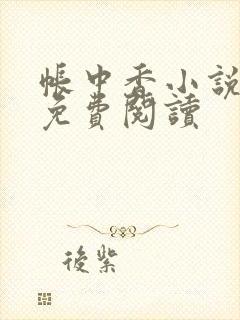 帳中香小說
免費閱讀
後紫